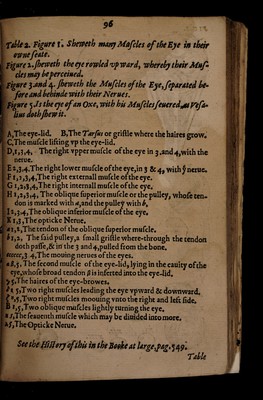 96
Table 2. Figure 1. Sheweth many Muscles of the Eye in their
owne seate.
Figure 2. sheweth the eye rowled vpward, whereby their Mus-
cles may be perceiued.
Figure 3. and 4. sheweth the Muscles of the Eye, separated be-
fore and behinde with their Nerues.
Figure 5. Is the eye of an Oxe, with his Muscles seuered, as Vesa-
lius doth shew it.
A, The eye-lid. B, The Tarsus or gristle where the haires grow.
C, The muscle lifting vp the eye-lid.
D, 1, 3, 4. The right vpper muscle of the eye in 3. and 4, with the
nerue.
E 2, 3, 4. The right lower muscle of the eye, in 3 & 4, with ye nerue.
F 1, 2, 3, 4, The right externall muscle of the eye.
G 1, 2, 3, 4, The right internall muscle of the eye.
H 1, 2, 3, 4, The oblique superior muscle or the pulley, whose ten-
don is marked with a, and the pulley with b.
I 2, 3, 4, The oblique inferior muscle of the eye.
K 1, 3, The opticke Nerue.
a 1, 2, The tendon of the oblique superior muscle.
b 1, 2, The said pulley, a small gristle where-through the tendon
doth passe, & in the 3 and 4, pulled from the bone.
3, 4, The mouing nerues of the eyes.
The second muscle of the eye-lid, lying in the cauity of the
eye, whose broad tendon β is inserted into the eye-lid.
γ 5, The haires of the eye-browes.
5, Two right muscles leading the eye vpward & downward.
5, Two right muscles moouing vnto the right and left side.
5, Two oblique muscles lightly turning the eye.
The seauenth muscle which may be diuided into more.
5, The Opticke Nerue.
See the History of this in the Booke at large, pag. 549.
Table